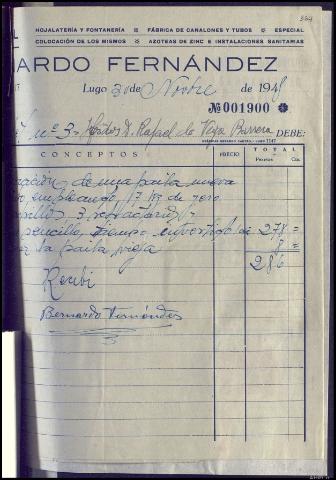 304
HOJALATERÍA Y FONTANERÍA FÁBRICA DE CANALONES Y TUBOS ESPECIAL
COLOCACIÓN DE LOS MISMOS AZOTEAS DE ZINC E INSTALACIONES SANITARIAS
ARDO FERNÁNDEZ
Lugo 30 de Novbre de 1948
Nº 001900
nº 3 D. Rafael de Vega Barrera DEBE:
CONCEPTOS PRECIO TOTAL
Pesetas Cts.
de una paila nueva
17 de
3
sencillo, tiempo invertido de 278 =
la paila vieja 8 =
286
Recibí
Bernardo Fernández